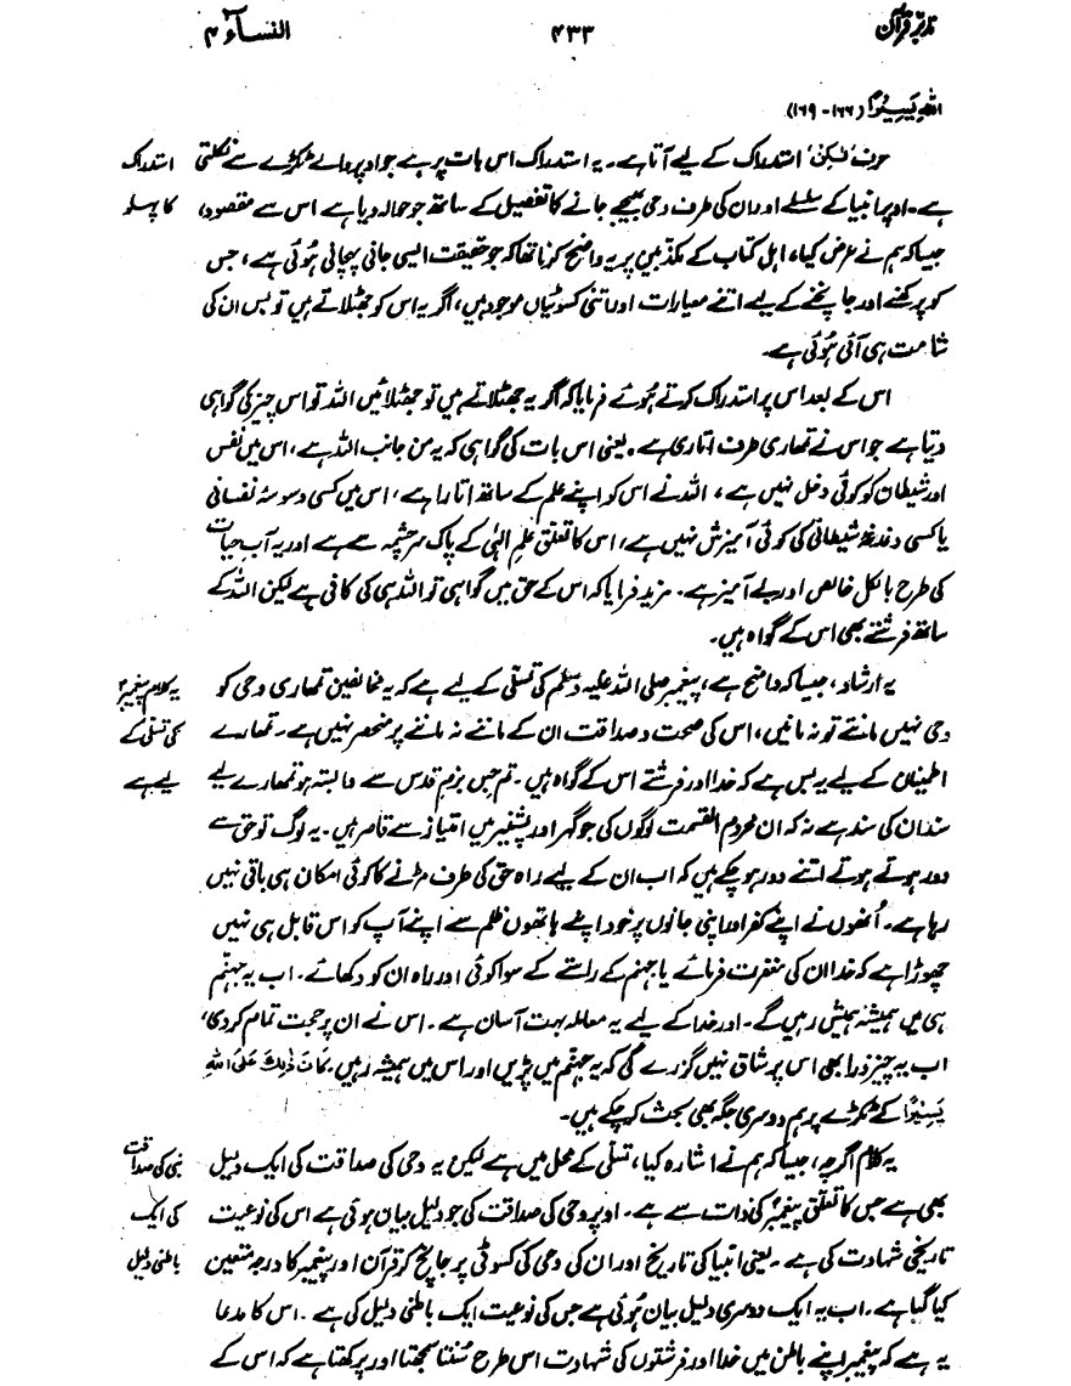 تدبر قرآن
۴۳۳
النساء ۴
اللہِ يَسِيْرًا (۱۶۶-۱۶۹)
حرف ’لٰکِن‘ استدراک کے لیے آتا ہے۔ یہ استدراک اس بات پر ہے جو اوپر والے ٹکڑے سے نکلتی
استدراک
ہے۔ اوپر انبیا کے سلسلے اور ان کی طرف وحی بھیجے جانے کا تفصیل کے ساتھ جو حوالہ دیا ہے اس سے مقصود،
کا پہلو
جیسا کہ ہم نے عرض کیا، اہل کتاب کے مکذبین پر یہ واضح کرنا تھا کہ جو حقیقت ایسی جانی پہچانی ہُوئی ہے، جس
کو پرکھنے اور جانچنے کے لیے اتنے معیارات اور اتنی کسوٹیاں موجود ہیں، اگر یہ اس کو جھٹلاتے ہیں تو بس ان کی
شامت ہی آئی ہُوئی ہے۔
اس کے بعد اس پر استدراک کرتے ہُوئے فرمایا کہ اگر یہ جھٹلاتے ہیں تو جھٹلائیں اللہ تو اس چیز کی گواہی
دیتا ہے جو اس نے تمھاری طرف اتاری ہے۔ یعنی اس بات کی گواہی کہ یہ من جانب اللہ ہے، اس میں نفس
اور شیطان کو کوئی دخل نہیں ہے، اللہ نے اس کو اپنے علم کے ساتھ اتارا ہے، اس میں کسی وسوسۂ نفسانی
یا کسی دغدغۂ شیطانی کی کوئی آمیزش نہیں ہے، اس کا تعلق علمِ الٰہی کے پاک سرچشمہ سے ہے اور یہ آبِ حیات
کی طرح بالکل خالص اور بے آمیز ہے۔ مزید فرمایا کہ اس کے حق میں گواہی تو اللہ ہی کی کافی ہے لیکن اللہ کے
ساتھ فرشتے بھی اس کے گواہ ہیں۔
یہ ارشاد، جیسا کہ واضح ہے، پیغمبر صلی اللہ علیہ وسلم کی تسلی کے لیے ہے کہ یہ مخالفین تمھاری وحی کو
یہ کلام پیغمبرؐ
وحی نہیں مانتے تو نہ مانیں، اس کی صحت و صداقت ان کے ماننے نہ ماننے پر منحصر نہیں ہے۔ تمھارے
کی تسلی کے
اطمینان کے لیے یہ بس ہے کہ خدا اور فرشتے اس کے گواہ ہیں۔ تم جس بزمِ قدس سے وابستہ ہو تمھارے لیے
لیے ہے
سند ان کی سند ہے نہ کہ ان محروم القسمت لوگوں کی جو گہر اور پشیز میں امتیاز سے قاصر ہیں۔ یہ لوگ تو حق سے
دور ہوتے ہوتے اتنے دور ہو چکے ہیں کہ اب ان کے لیے راہ حق کی طرف مڑنے کا کوئی امکان ہی باقی نہیں
رہا ہے۔ اُنھوں نے اپنے کفر اور اپنی جانوں پر خود اپنے ہاتھوں ظلم سے اپنے آپ کو اس قابل ہی نہیں
چھوڑا ہے کہ خدا ان کی مغفرت فرمائے یا جہنم کے راستے کے سوا کوئی اور راہ ان کو دکھائے۔ اب یہ جہنّم
ہی میں ہمیشہ ہمیش رہیں گے۔ اور خدا کے لیے یہ معاملہ بہت آسان ہے۔ اس نے ان پر حجت تمام کر دی،
اب یہ چیز ذرا بھی اس پر شاق نہیں گزرے گی کہ یہ جہنّم میں پڑیں اور اس میں ہمیشہ رہیں۔ كَانَ ذٰلِكَ عَلَى اللهِ
يَسِيْرًا کے ٹکڑے پر ہم دوسری جگہ بھی بحث کر چکے ہیں۔
یہ کلام اگرچہ، جیسا کہ ہم نے اشارہ کیا، تسلّی کے محل میں ہے لیکن یہ وحی کی صداقت کی ایک دلیل
نبی کی صداقت
بھی ہے جس کا تعلّق پیغمبرؐ کی ذات سے ہے۔ اوپر وحی کی صداقت کی جو دلیل بیان ہوئی ہے اس کی نوعیت
کی ایک
تاریخی شہادت کی ہے۔ یعنی انبیا کی تاریخ اور ان کی وحی کی کسوٹی پر جانچ کر قرآن اور پیغمبر کا درجہ متعین
باطنی دلیل
کیا گیا ہے۔ اب یہ ایک دوسری دلیل بیان ہُوئی ہے جس کی نوعیت ایک باطنی دلیل کی ہے۔ اس کا مدعا
یہ ہے کہ پیغمبر اپنے باطن میں خدا اور فرشتوں کی شہادت اس طرح سُنتا سمجھتا اور پرکھتا ہے کہ اس کے